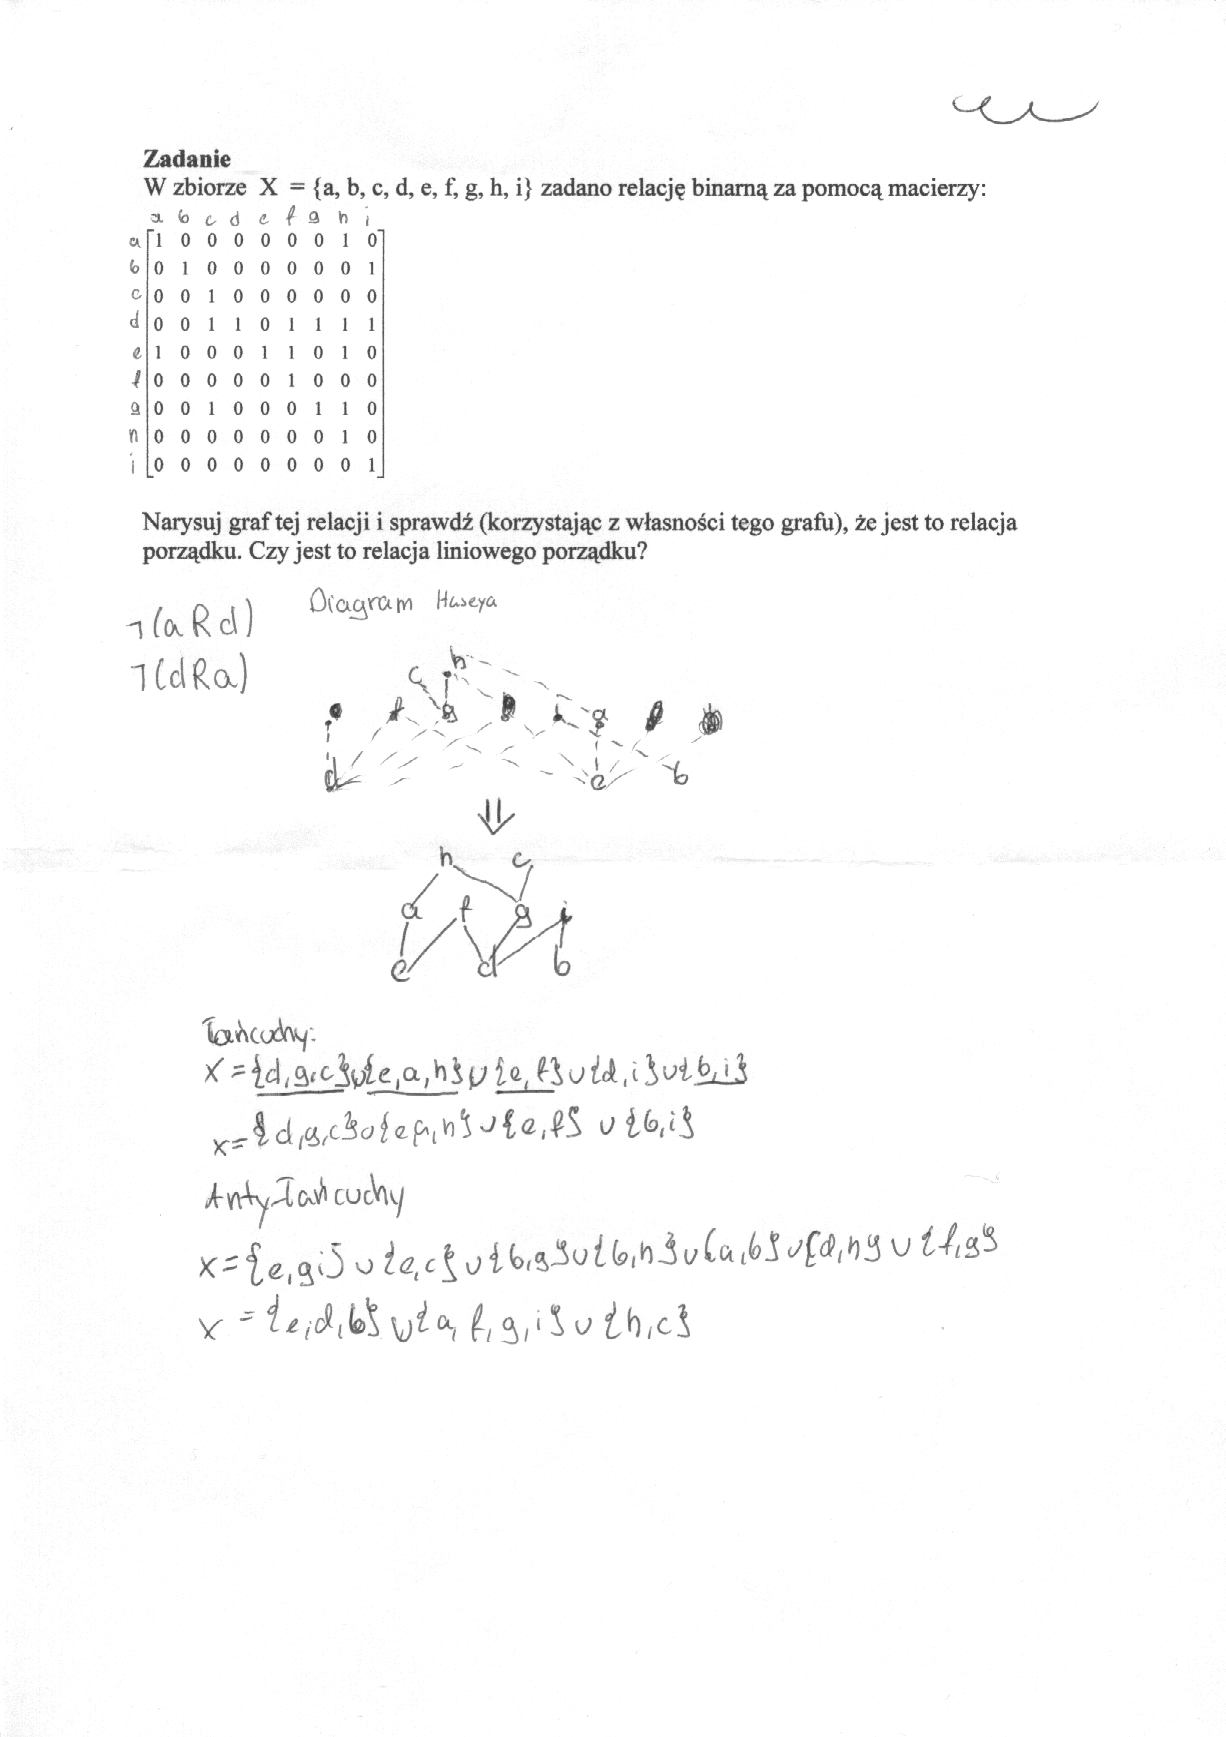 Zadanie
W zbiorze X = {a, b, c, d, e, f, g, h, i} zadano relację binarną za pomocą macierzy:
a b c d e f g h i
a 1 0 0 0 0 0 0 1 0
b 0 1 0 0 0 0 0 0 1
c 0 0 1 0 0 0 0 0 0
d 0 0 1 1 0 1 1 1 1
e 1 0 0 0 1 1 0 1 0
f 0 0 0 0 0 1 0 0 0
g 0 0 1 0 0 0 1 1 0
h 0 0 0 0 0 0 0 1 0
i 0 0 0 0 0 0 0 0 1
Narysuj graf tej relacji i sprawdź (korzystając z własności tego grafu), że jest to relacja
porządku. Czy jest to relacja liniowego porządku?
Diagram Hasseya
¬(a R d)
¬(d R a)
h
c
f g i a
d e b
⇓
h c
a f g i
e d b
Łańcuchy:
X = {d,g,c}∪{e,a,h}∪{e,f}∪{d,i}∪{b,i}
x = {d,g,c}∪{e,a,h}∪{e,f} ∪ {b,i}
Anty-Łańcuchy
x = {e,g,i} ∪ {e,c}∪{b,g}∪{b,h}∪{a,b}∪{d,h} ∪ {f,g}
x = {e,d,b} ∪{a, f, g, i} ∪ {h,c}